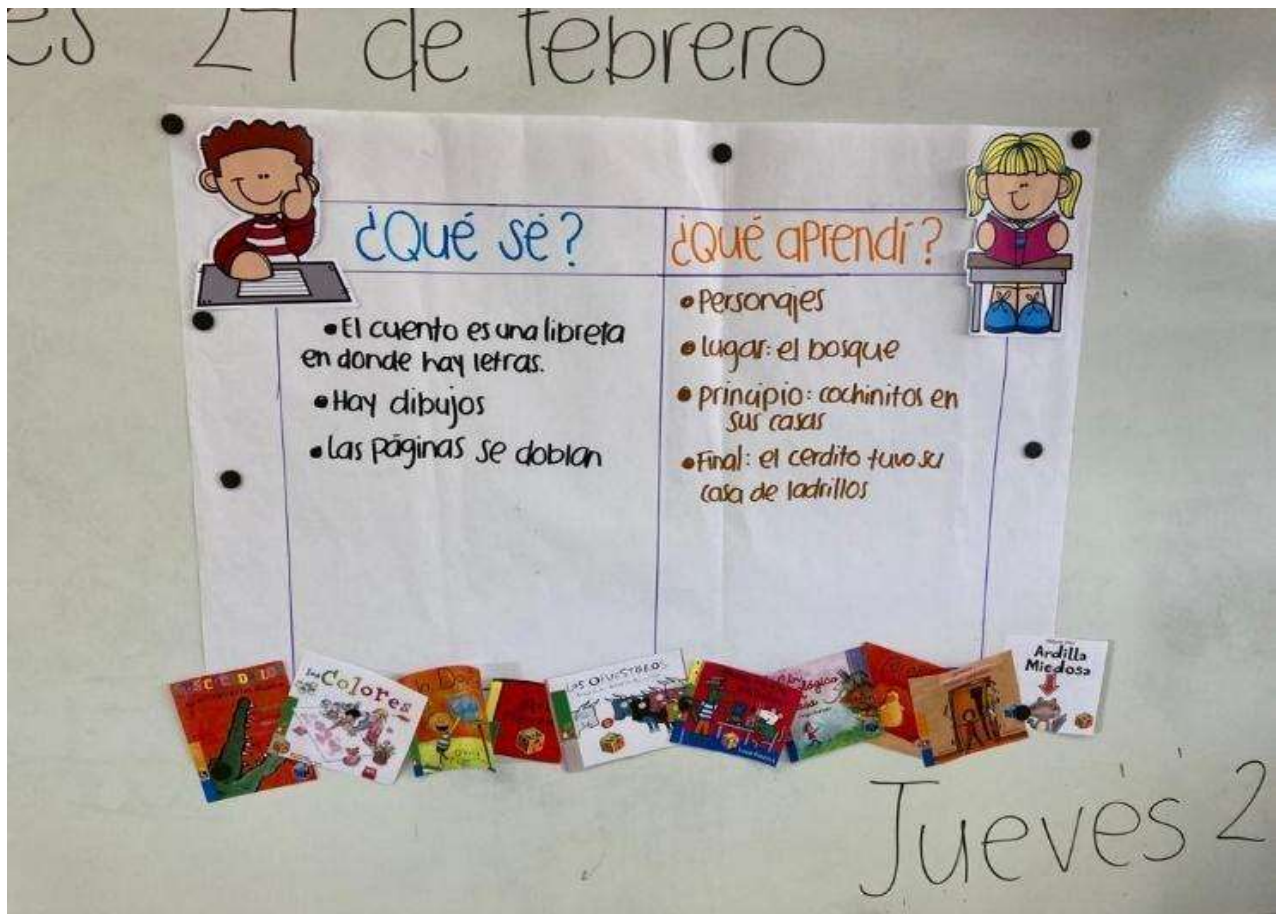 es 27 de febrero
¿Qué sé?
¿Qué aprendí?
•El cuento es una libreta
en donde hay letras.
•Hay dibujos
•Las páginas se doblan
•Personajes
•lugar: el bosque
•principio: cochinitos en
sus casas
•Final: el cerdito tuvo su
casa de ladrillos
Colores
Ardilla
Miedosa
Jueves 2